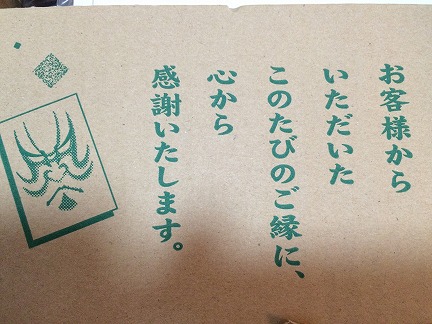 お客様から
いただいた
このたびのご縁に、
心から
感謝いたします。